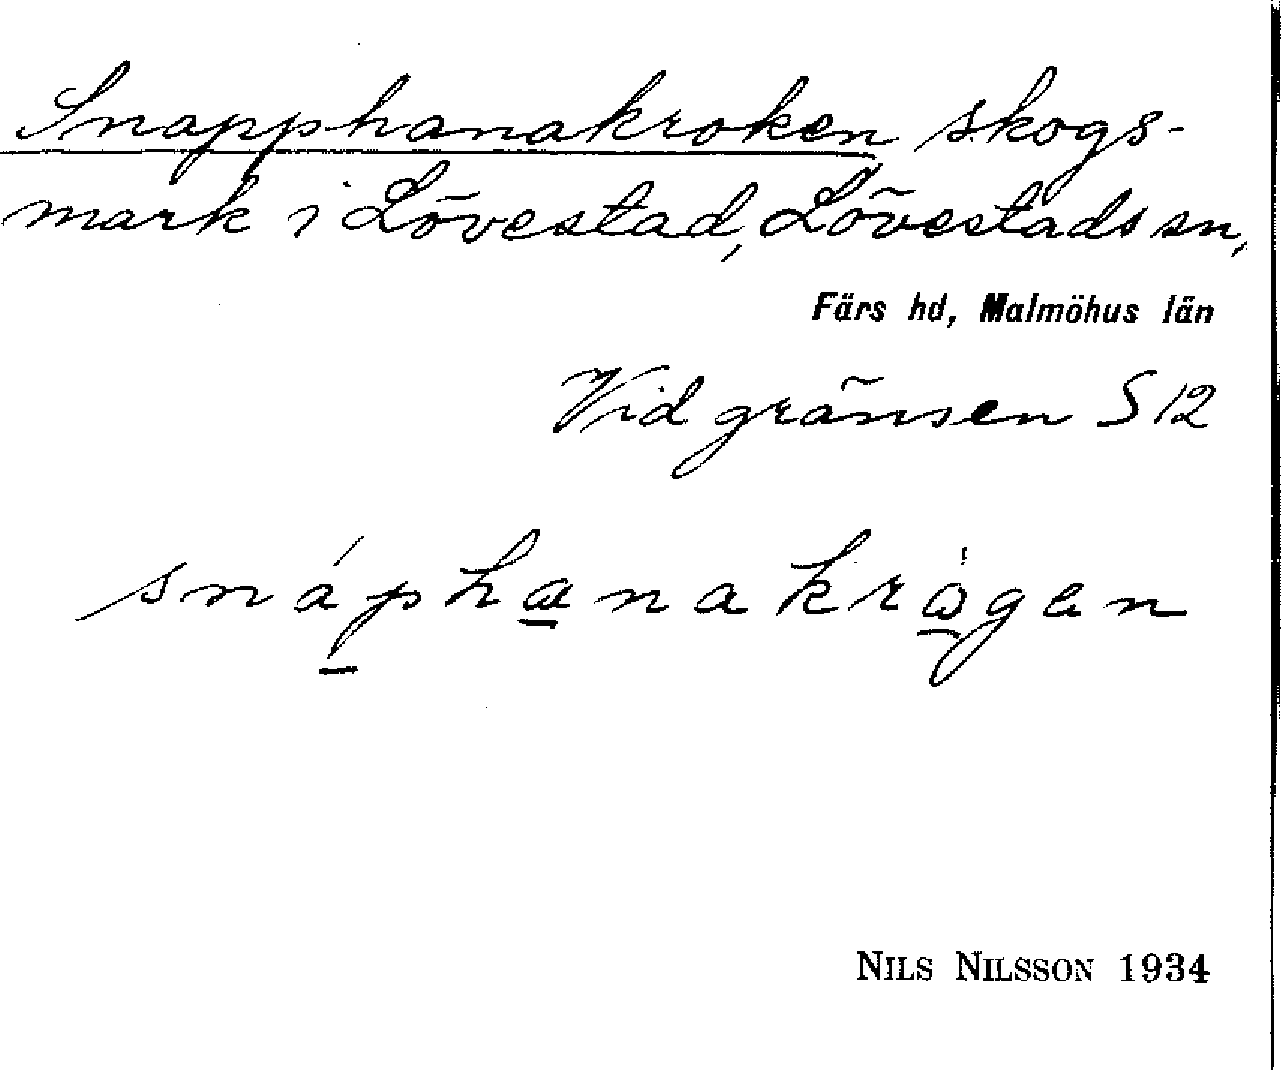 Snapphanakroken skogs-
mark i Lövestad, Lövestads sn,
Färs hd, Malmöhus län
Vid gränsen S 12
snáphanakrògen
NILS NILSSON 1934